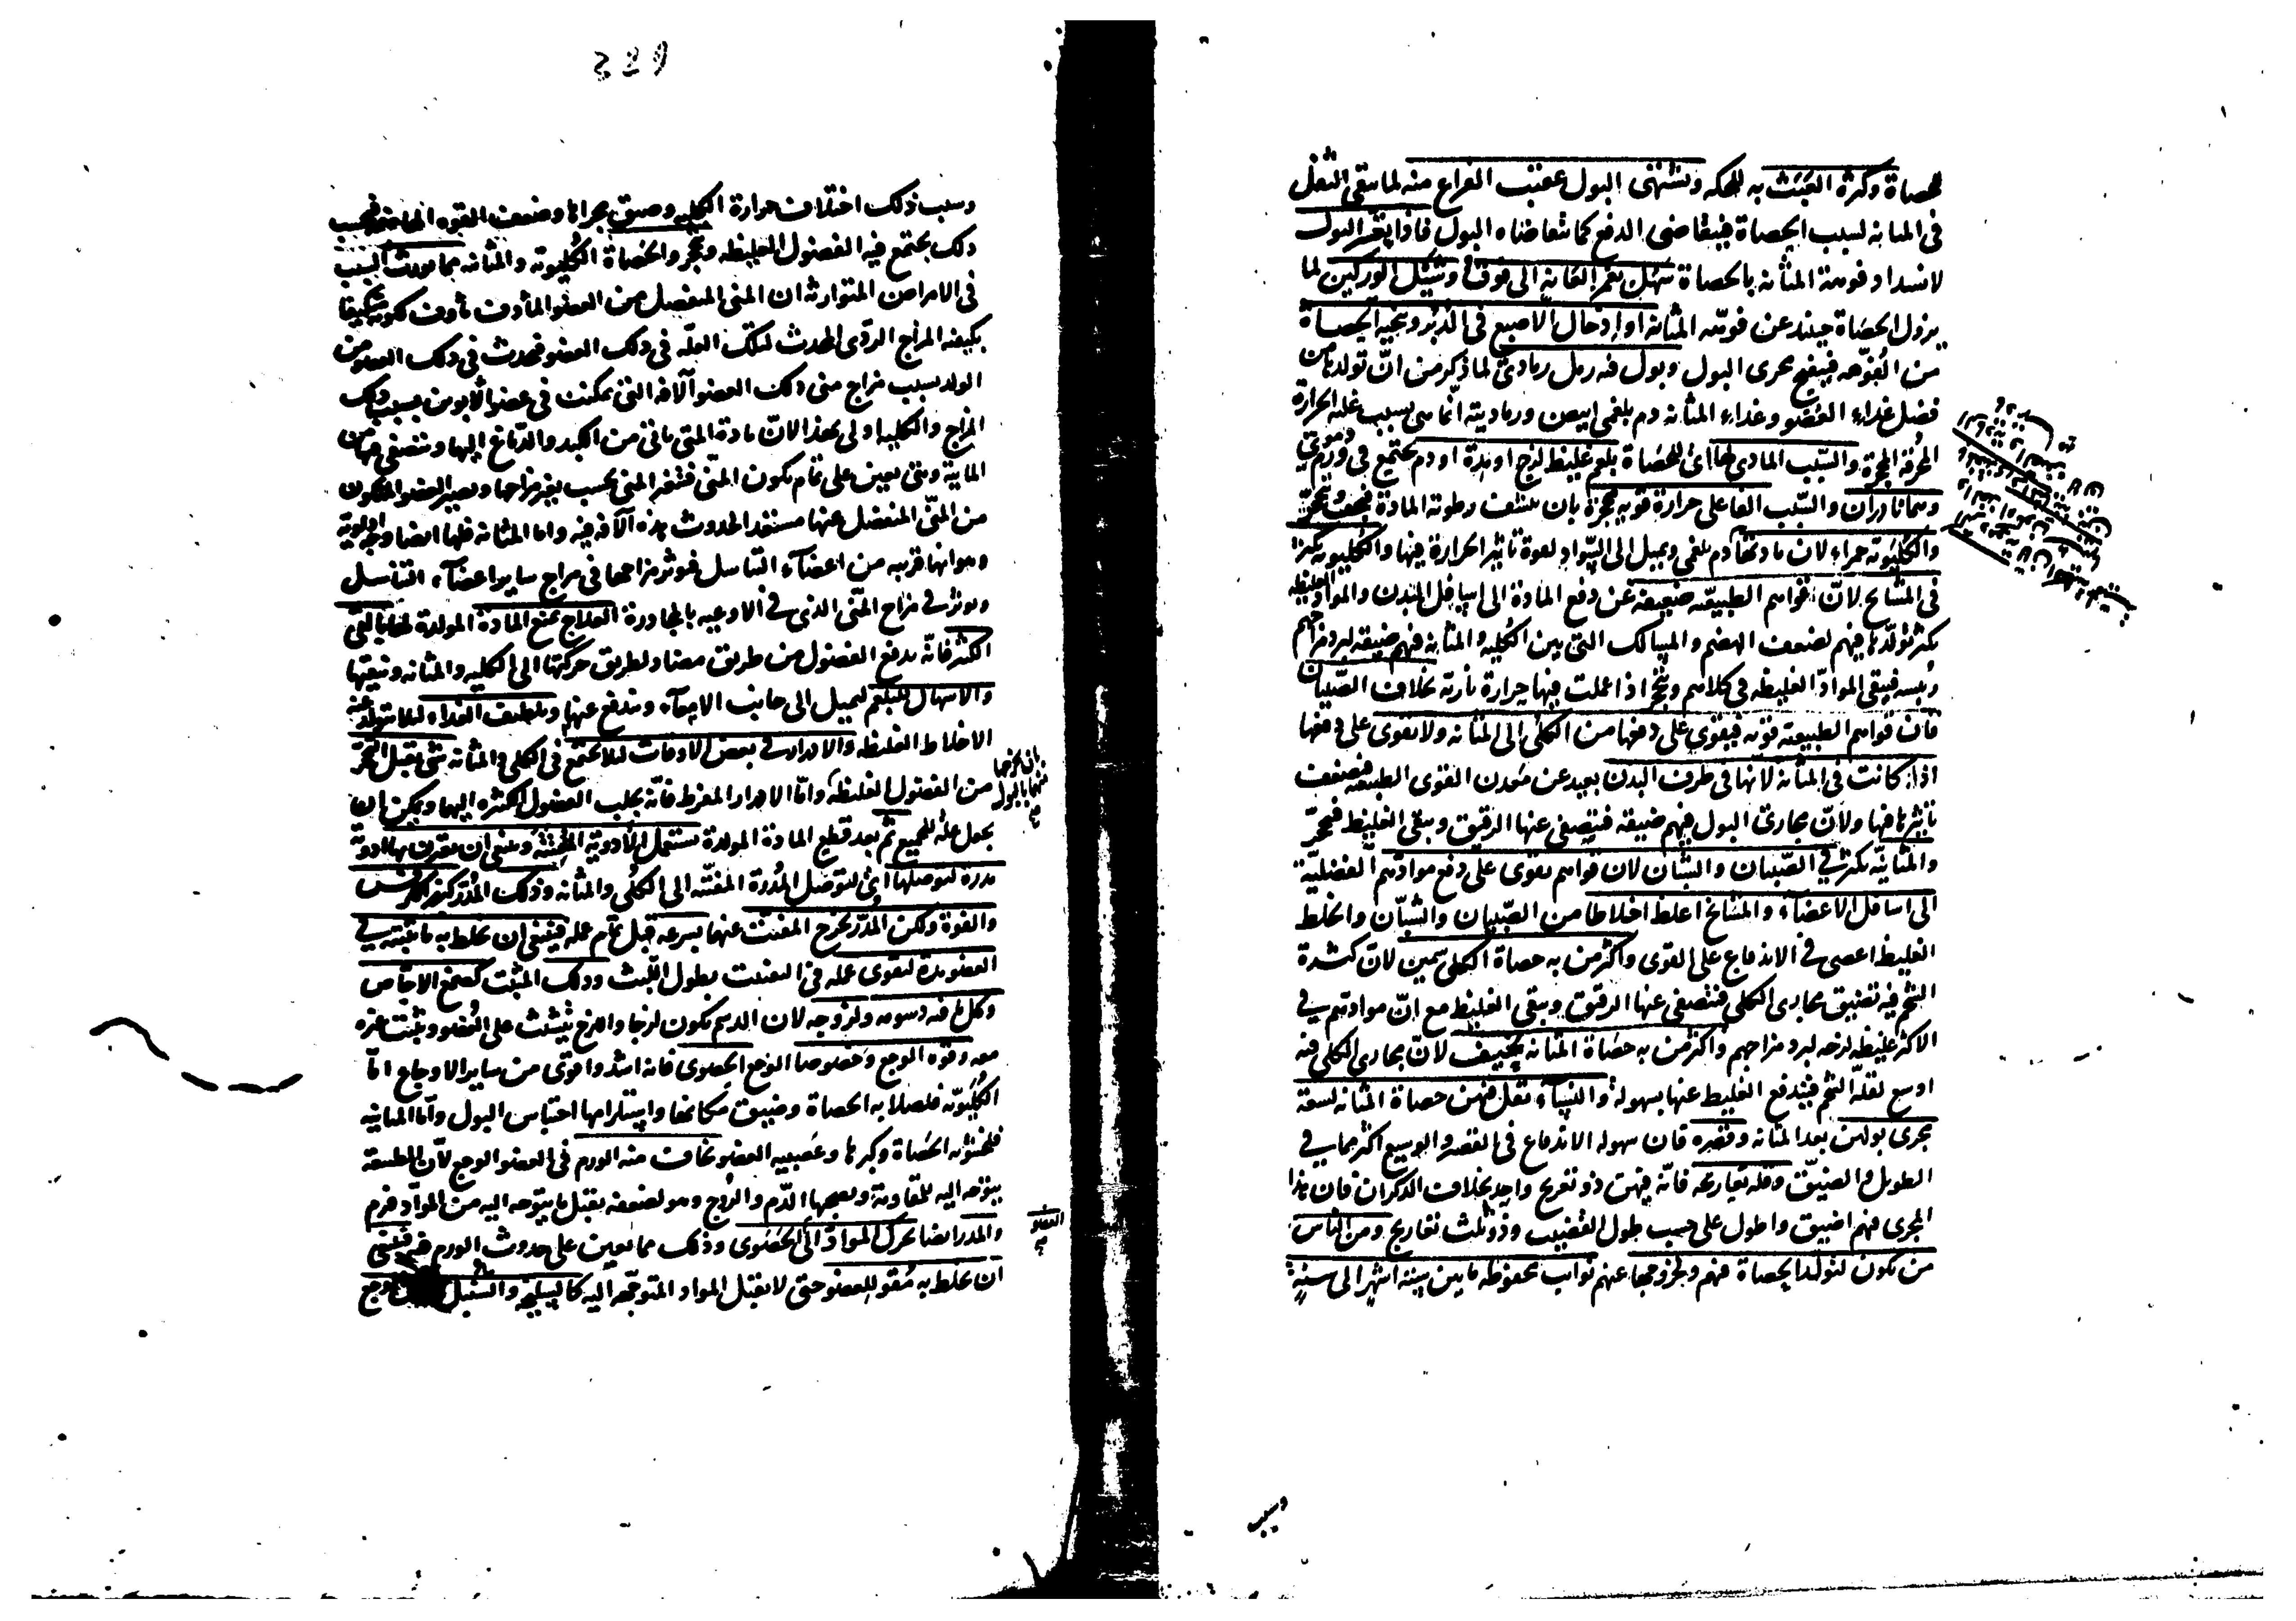 للحصاة وكثرة العبث به للحكة ويشتهى البول عقيب الفراغ منه لما يبقى الثفل
فى المثانة لسبب الحصاة فيتقاضى الدفع كما تتقاضاه البول فاذا تعسر البول
لانسداد فوهة المثانة بالحصاة سهل بغمز العانة الى فوق وتشيل الوركين لما
يزول الحصاة حينئذ عن فوهة المثانة او ادخال الاصبع فى الدبر وتنحية الحصاة
من الفوهة فينفتح مجرى البول ويبول فيه رمل رمادى لما ذكر من ان تولدها من
فضل غذاء العضو وغذاء المثانة دم بلغمى ابيض ورماديته انما هى بسبب غلبة الحرارة
المحرقة المحجرة والسبب المادى لها اى للحصاة بلغم غليظ لزج او مدة او دم يجتمع فى ورم دموى
وهما نادران والسبب الفاعلى حرارة قوية محجرة بان ينشف رطوبة المادة فيجف ويتحجر
والكليوية حمراء لان مادتها دم بلغمى ويميل الى السواد لقوة تاثير الحرارة فيها والكليوية يكثر
فى المشايخ لان قواهم الطبيعية ضعيفة عن دفع المادة الى اسافل البدن والمواد الغليظة
يكثر تولدها فيهم لضعف الهضم والمسالك التى بين الكلية والمثانة فيهم ضيقة لبرد مزاجهم
ويبسه فيبقى المواد الغليظة فى كلاهم ويتحجر اذا عملت فيها حرارة نارية بخلاف الصبيان
فان قواهم الطبيعية قوية فيقوى على دفعها من الكلى الى المثانة ولا يقوى على دفعها
اذا كانت فى المثانة لانها فى طرف البدن بعيد عن معدن القوى الطبيعية فيضعف
تاثيرها فيها ولان مجارى البول فيهم ضيقة فيتصفى عنها الرقيق ويبقى الغليظ فيتحجر
والمثانية يكثر فى الصبيان والشبان لان قواهم يقوى على دفع موادهم الفضلية
الى اسافل الاعضاء والمشايخ اغلظ اخلاطا من الصبيان والشبان والخلط
الغليظ اعصى فى الاندفاع على القوى واكثر من به حصاة الكلى سمين لان كثرة
الشحم فيه تضيق مجارى الكلى فيتصفى عنها الرقيق ويبقى الغليظ مع ان موادهم فى
الاكثر غليظة لزجة لبرد مزاجهم واكثر من به حصاة المثانة نحيف لان مجارى الكلى فيه
اوسع لقلة الشحم فيندفع الغليظ عنها بسهولة والنساء تقل فيهن حصاة المثانة لسعة
مجرى بولهن بعد المثانة وقصره فان سهولة الاندفاع فى القصير والوسيع اكثر مما فى
الطويل والضيق وقلة تعاريجه فانه فيهن ذو تعريج واحد بخلاف الذكران فان هذا
المجرى فيهم اضيق واطول على حسب طول القضيب وذو ثلث تعاريج ومن الناس
من يكون لتولد الحصاة فيهم ولخروجها عنهم نوائب محفوظة ما بين ستة اشهر الى سنة
وسبب
وسبب ذلك اختلاف حرارة الكلية وضيق مجراها وضعف القوة الهاضمة فبحسب
ذلك يجتمع فيه الفضول الغليظة ويتحجر والحصاة الكليوية والمثانية مما يورث السبب
فى الامراض المتوارثة ان المنى المنفصل من العضو المأوف مأوف لكونه متكيفا
بكيفية المزاج الردى المحدث لتلك العلة فى ذلك العضو فيحدث فى ذلك العضو من
الولد بسبب مزاج منى ذلك العضو الآفة التى تمكنت فى عضو الأبوين بسبب ذلك
المزاج والكلية اولى بهذا لان مادة المنى ياتى من الكبد والدماغ اليها ويتصفى فيها من
المائية وهى تعين على تمام تكون المنى فتغير المنى بحسب تغير مزاجها ويصير العضو المتكون
من المنى المنفصل عنها مستعد الحدوث هذه الآفة فيه واما المثانة فلها ايضا وجه اولوية
وهو انها قريبة من اعضاء التناسل فيؤثر مزاجها فى مزاج ساير اعضاء التناسل
ويؤثر فى مزاج المنى الذى فى الاوعية بالمجاورة العلاج يمنع المادة المولدة لها بالقى
اكثر فانه يدفع الفضول من طريق مضاد لطريق حركتها الى الكلية والمثانة وينقيها
والاسهال للبلغم ليميل الى جانب الامعاء ويندفع عنها وتلطيف الغذاء لئلا يتولد منه
الاخلاط الغليظة والادرار فى بعض الاوقات لئلا يجتمع فى الكلى والمثانة شئ يقبل التحجر
من الفضول الغليظة واما الادرار المفرط فانه يجلب الفضول الكثيرة اليها ويمكن ان
بان يخرجها منها بالبول
يجعل علة للجميع ثم بعد قطع المادة المولدة يستعمل الادوية المفتتة وينبغى ان يقرن بها ادوية
مدرة لتوصلها اى لتوصل المدرة المفتتة الى الكلى والمثانة وذلك المدر كبزر الكرفس
والفوة ولكن المدر يخرج المفتت عنها بسرعة قبل تمام عمله فينبغى ان يخلط به ما يثبته فى
العضو مدة لتقوى عمله فى التفتيت بطول اللبث وذلك المثبت كصمغ الاجاص
وكل ما فيه دسومة ولزوجة لان الدسم يكون لزجا واللزج يتشبث على العضو ويثبت غيره
معه وقوة الوجع وخصوصا الوجع الحصوى فانه اشد واقوى من ساير الاوجاع اما
الكليوية فلصلابة الحصاة وضيق مكانها واستلزامها احتباس البول واما المثانية
فلخشونة الحصاة وكبرها وعصبية العضو يخاف منه الورم فى العضو الوجع لان الطبيعة
يتوجه اليه للمقاومة ويصحبها الدم والروح وهو لضعفه يقبل ما يتوجه اليه من المواد فيرم
والمدر ايضا يحرك المواد الى الحصوى وذلك مما يعين على حدوث الورم فيه فينبغى
العضو
ان يخلط به مقو للعضو حتى لا يقبل المواد المتوجهة اليه كالسليخة والسنبل